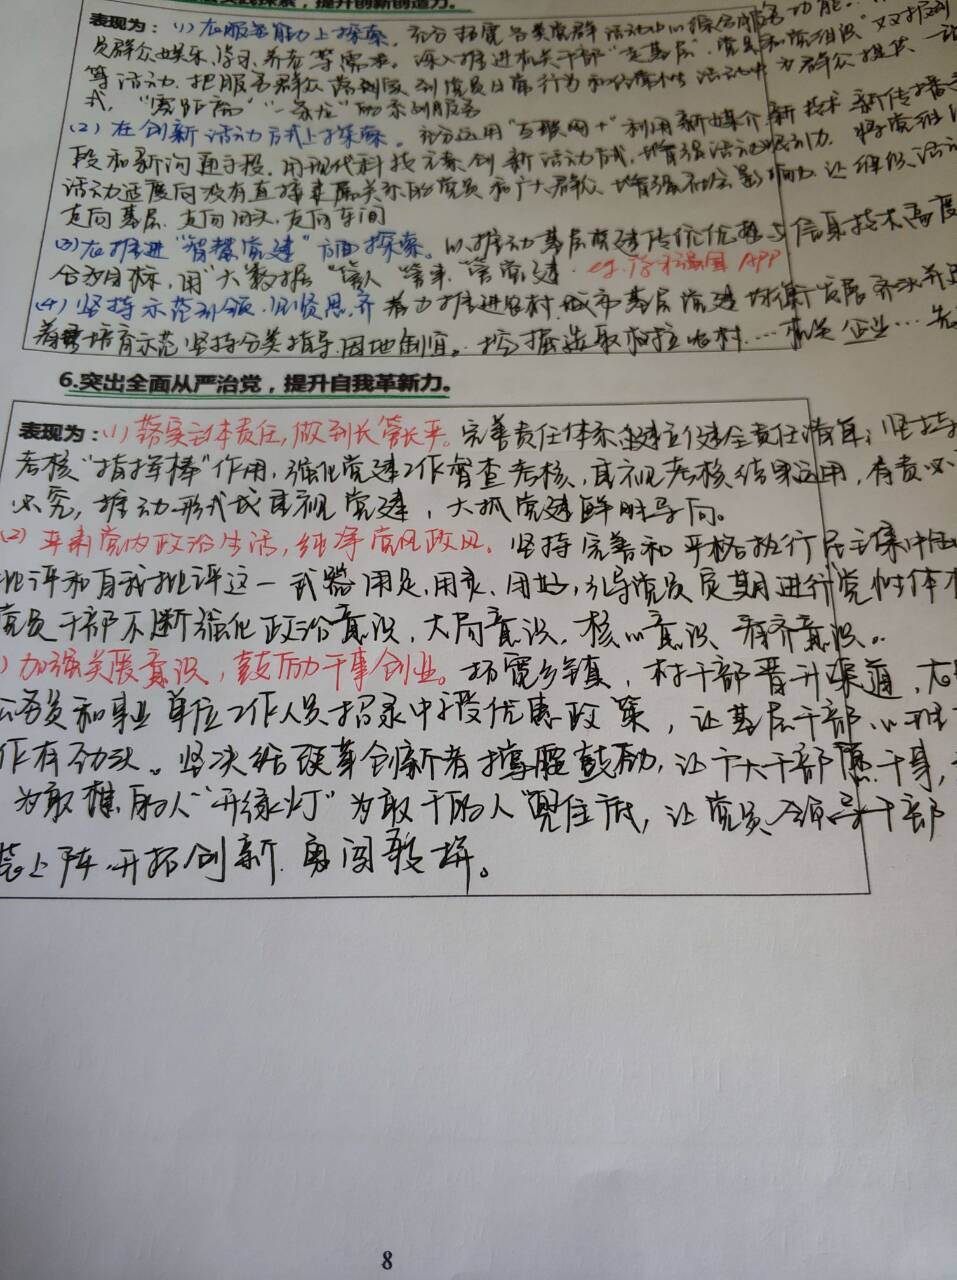 实践探索，提升创新创造力。
表现为：(1)在服务能力上探索。充分拓宽各类党群活动中心综合服务功能。
员群众娱乐、学习、养老等需求。深入推进机关干部“走基层”、党员和党组织“双报到
等活动，把服务群众 党员日常行为和 活动中 为群众提供一
式，“零距离”“一条龙”的系列服务
(2)在创新活动方式上探索。充分运用“互联网+”利用新媒介 新技术 新传播手
段和新沟通手段，用现代科技元素创新活动方式，增强活动吸引力。将党组
活动适度向没有直接隶属关系的党员和广大群众 增强社会影响力，让组织活动
走向基层、走向田头、走向车间
(3)在推进“智慧党建”方面探索。以推动基层党建传统优势与信息技术高度
合为目标，用“大”数据“管人”“管事”“管党建” 学习强国APP
(4)坚持示范引领、见贤思齐 着力推进农村、城市基层党建均衡发展 齐头并进
着 培育示范 坚持分类指导、因地制宜。挖掘选取 农村……机关 企业……先
6.突出全面从严治党，提升自我革新力。
表现为：(1)落实主体责任，做到长管长严。完善责任体系 建立健全责任清单；坚持
考核“指挥棒”作用，强化党建工作督查考核，重视考核结果运用，有责必
必究，推动形成重视党建，大抓党建鲜明导向。
(2)严肃党内政治生活，纯净党风政风。坚持完善和严格执行民主集中
批评和自我批评这一武器用足、用实、用好，引导党员定期进行党性体检
党员干部不断强化政治意识，大局意识，核心意识 看齐意识。
)加强关爱意识，鼓励干事创业。拓宽乡镇，村干部晋升渠道，在
公务员和事业单位工作人员招录中授优惠政策，让基层干部
作有劲头。坚决给改革创新者撑腰鼓励，让广大干部愿干事，
为敢想的人“开绿灯”为敢干的人“兜住底，让党员领导干部
装上阵、开拓创新、勇闯敢拼。
8